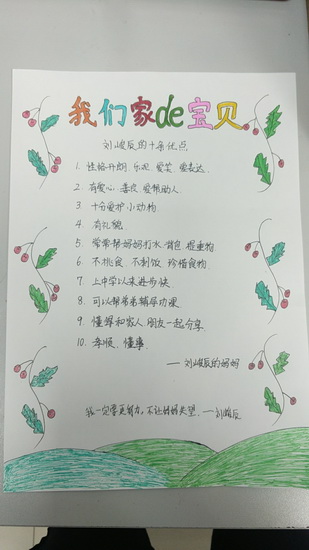 我们家de宝贝
刘峻辰的十条优点
1. 性格开朗、乐观、爱笑、爱表达.
2. 有爱心、善良、爱帮助人.
3. 十分爱护小动物.
4. 有礼貌.
5. 常常帮妈妈打水、背包、提重物
6. 不挑食、不剩饭、珍惜食物
7. 上中学以来进步快.
8. 可以帮弟弟辅导功课.
9. 懂得和家人、朋友一起分享.
10. 孝顺、懂事.
——刘峻辰的妈妈
我一定要更努力,不让妈妈失望. ——刘峻辰